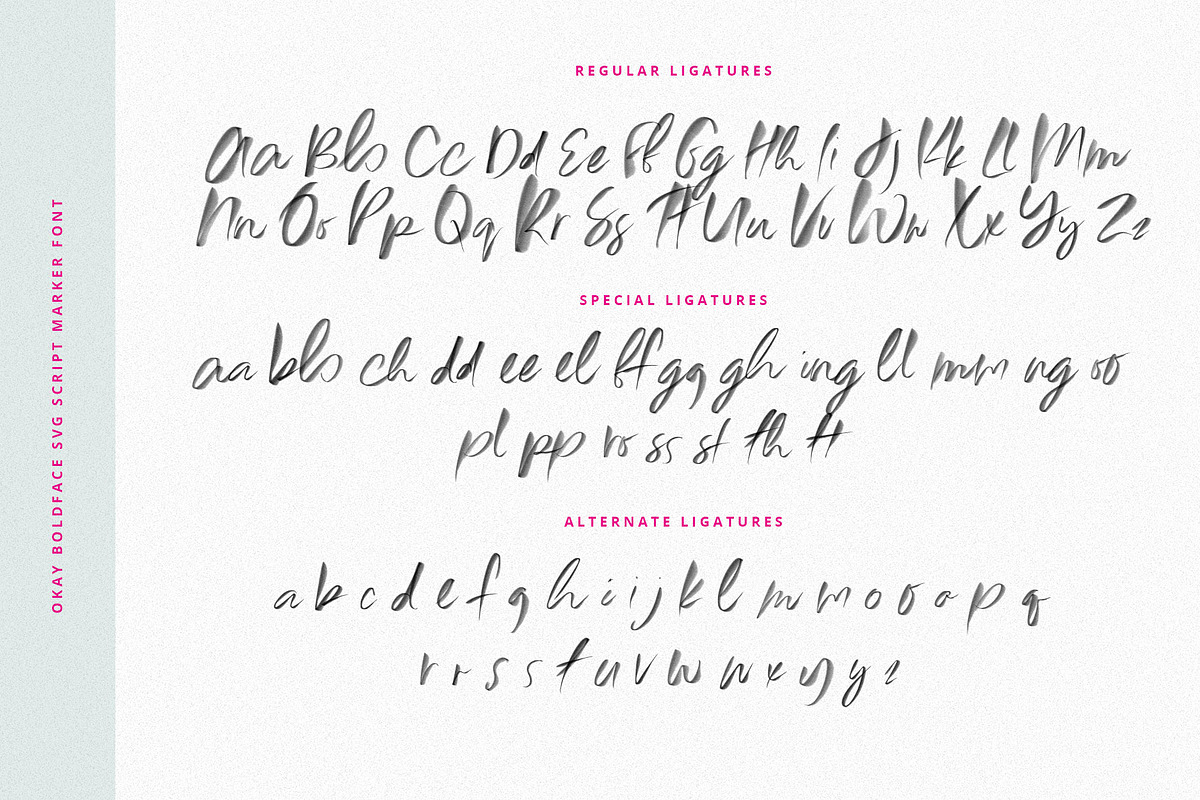 OKAY BOLDFACE SVG SCRIPT MARKER FONT
REGULAR LIGATURES
Aa Bb Cc Dd Ee Ff Gg Hh Ii Jj Kk Ll Mm
Nn Oo Pp Qq Rr Ss Tt Uu Vv Ww Xx Yy Zz
SPECIAL LIGATURES
aa bb ch dd ee el ff gg gh ing ll mm ng oo
pl pp ro ss st th tt
ALTERNATE LIGATURES
a b c d e f g h i i j k l m m o o o p q
r r s s t u v w w x y y z